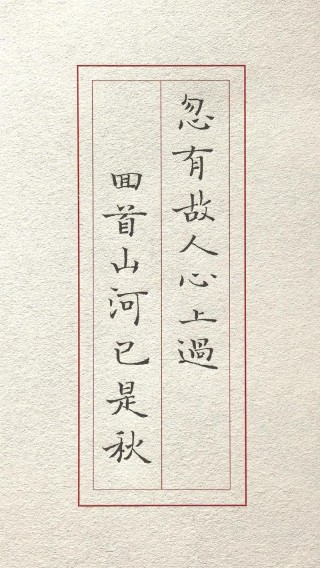 忽有故人心上過
回首山河已是秋